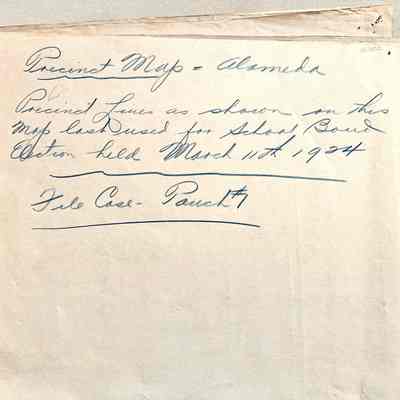 Precinct Map = Alameda
Precinct Lines as shown on this
Map last used for School Board
Election held March 11th 1924
File Case - Pouch #1